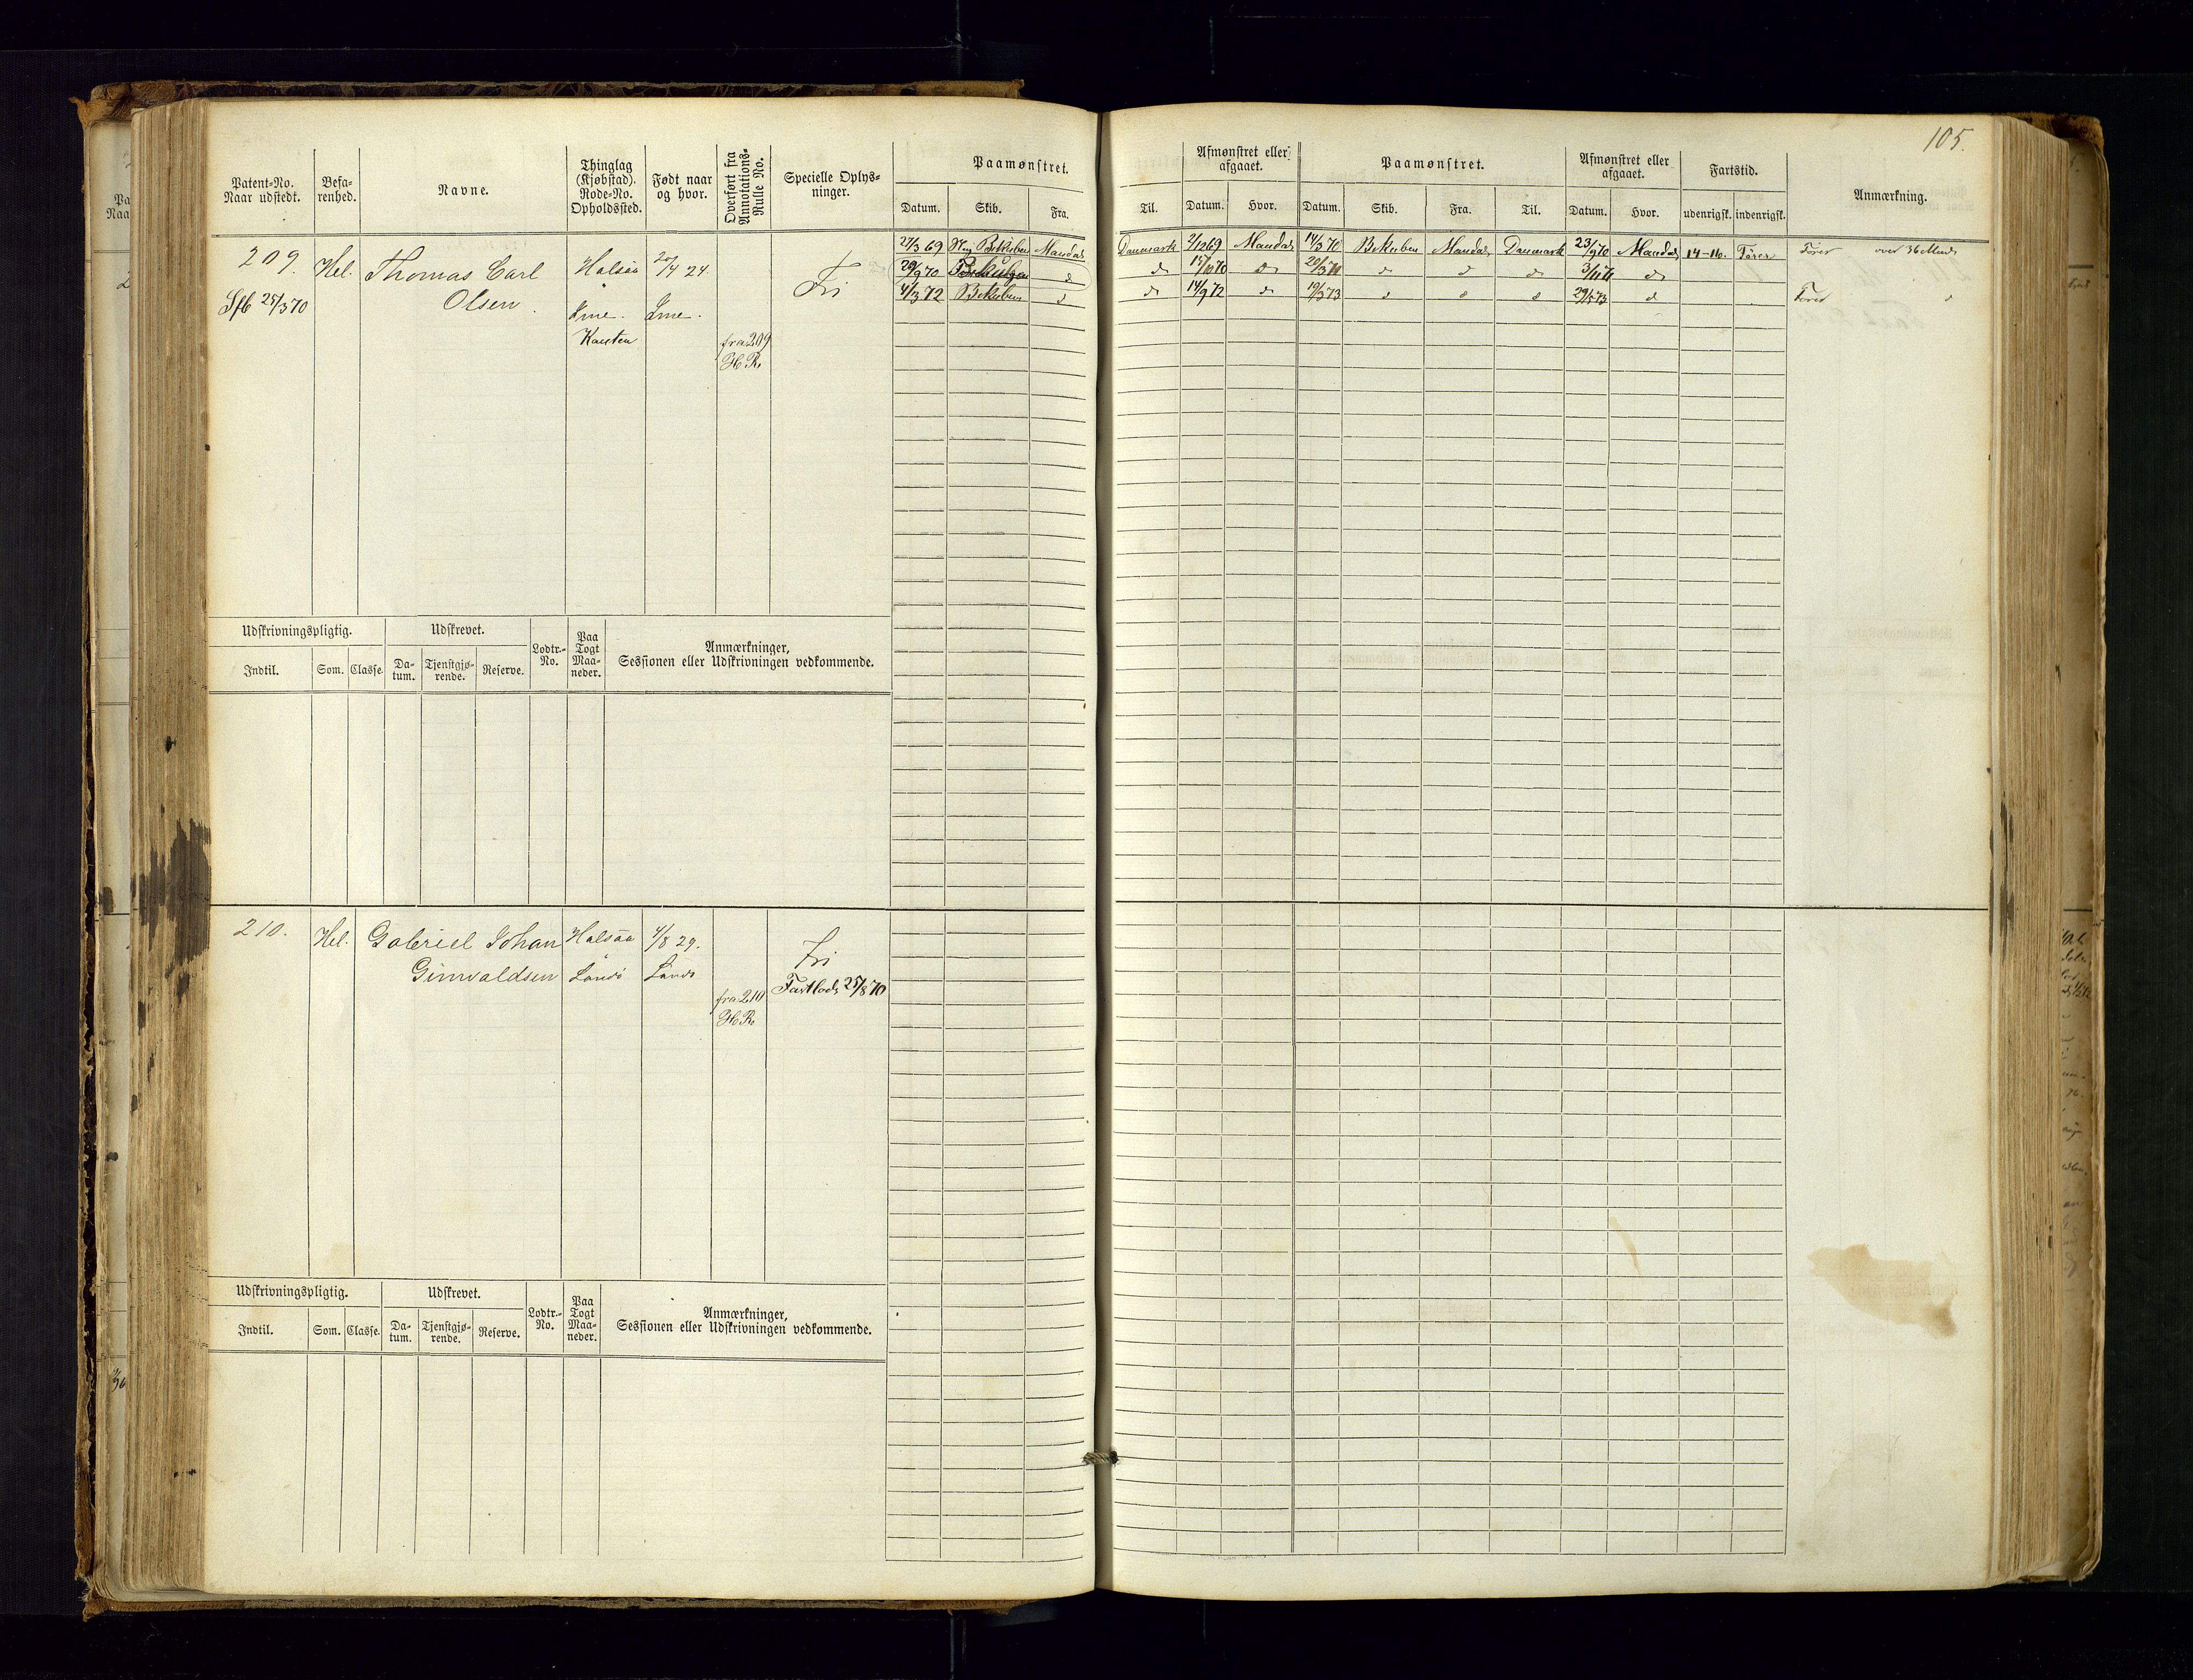 105.
Patent-No. Naar udstedt.
Befa-renhed.
Navne.
Thinglag (Kjøbstad). Rode-No. Opholdssted.
Født naar og hvor.
Overført fra Annotations-Rulle No.
Specielle Oplys-ninger.
Paamønstret.
Datum. Skib. Fra.
Til.
Afmønstret eller afgaaet.
Datum. Hvor.
Paamønstret.
Datum. Skib. Fra. Til.
Afmønstret eller afgaaet.
Datum. Hvor.
Fartstid.
udenrigsk. indenrigsk.
Anmærkning.
209. Hel. Thomas Carl Halsaa 20/4 24. Fri
Olsen
Sfb 25/3 70
Ime. Ime.
Karsten
fra 209
H.R.
27/3 69 Bikuben Mandal Danmark 2/12 69 Mandal 14/3 70 Bikuben Mandal Danmark 23/9 70 Mandal 14-16. Fører Fører over 36
28/9 70 d d 15/11 70 d 20/3 71 d d d 3/11 71 d
4/3 72 Bikuben d d 14/9 72 d 19/3 73 d d d 29/5 73 d Fører d
Udskrivningspligtig. Udskrevet. Lodtr.-No. Paa Togt Maa-neder. Anmærkninger, Sessionen eller Udskrivningen vedkommende.
Indtil. Som. Classe. Da-tum. Tjenstgjø-rende. Reserve.
210. Hel. Gabriel Johan Halsaa 4/8 29. Fri
Landø
Fastlods 25/8 70
fra 210
H.R.
Udskrivningspligtig. Udskrevet. Lodtr.-No. Paa Togt Maa-neder. Anmærkninger, Sessionen eller Udskrivningen vedkommende.
Indtil. Som. Classe. Da-tum. Tjenstgjø-rende. Reserve.